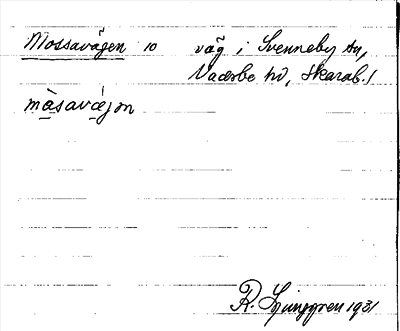 Mossavägen 10 väg i Svenneby sn,
Vadsbo hd, Skarab. l
màsavä́jən
R. Ljunggren 1931